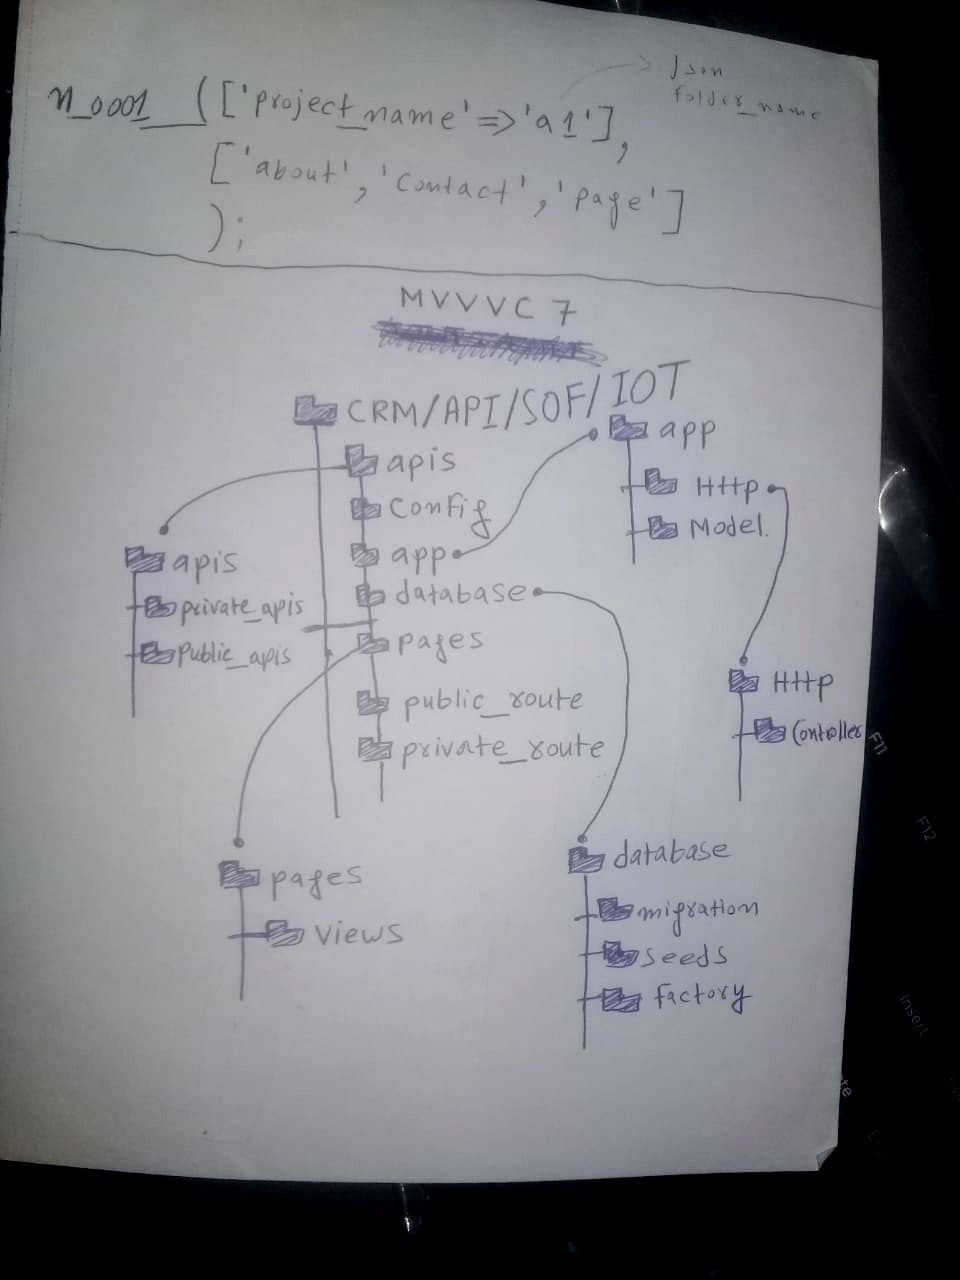 n_0001__(['project_name'=>'a1'],
Json
folder_name
['about', 'Contact', 'page']
);
MVVVC 7
CRM/API/SOF/IOT
apis
Config
app
database
pages
public_route
private_route
app
Http
Model.
apis
private_apis
Public_apis
Http
Controller
pages
views
database
migration
seeds
factory
F11
F12
Insert